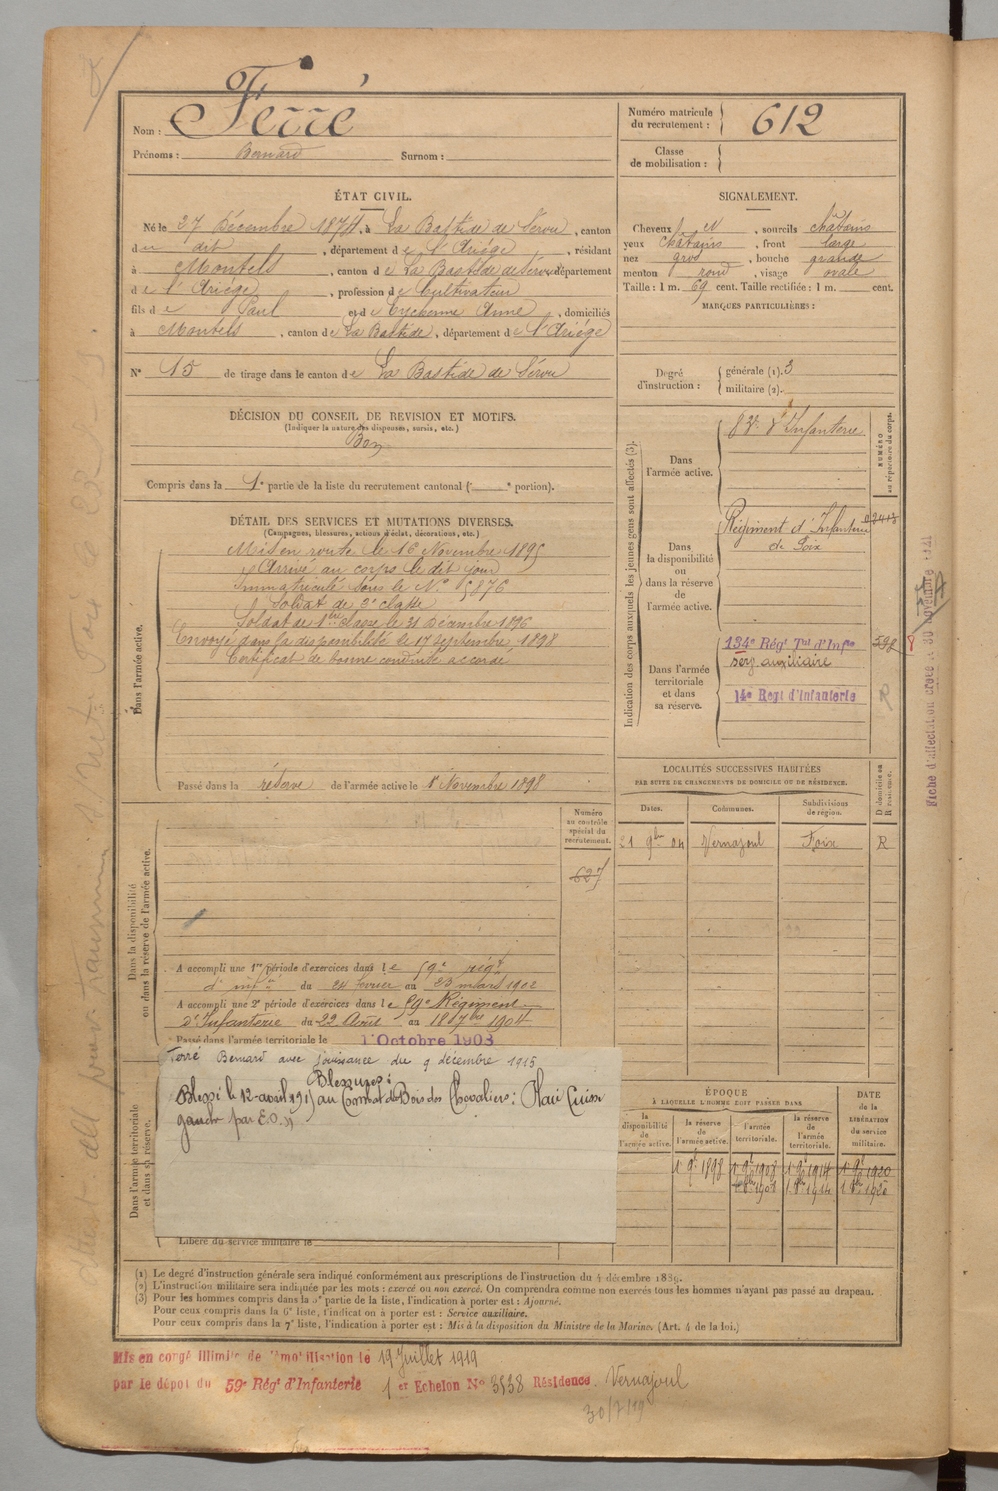 Nom : Ferré
Prénoms : Bernard Surnom :
Numéro matricule du recrutement : 612
Classe de mobilisation :
ÉTAT CIVIL.
Né le 27 Décembre 1874, à La Bastide de Sérou, canton
du dit, département de l'Ariége, résidant
à Montels, canton de La Bastide de Sérou département
de l'Ariége, profession de Cultivateur
fils de Paul et de Eychenne Anne, domiciliés
à Montels, canton de La Bastide, département de l'Ariége
N° 15 de tirage dans le canton de La Bastide de Sérou
SIGNALEMENT.
Cheveux et, sourcils châtains
yeux châtains, front large
nez gros, bouche grande
menton rond, visage ovale
Taille : 1 m. 69 cent. Taille rectifiée : 1 m. cent.
MARQUES PARTICULIÈRES :
Degré d'instruction : générale (1). 3
militaire (2).
DÉCISION DU CONSEIL DE REVISION ET MOTIFS.
(Indiquer la nature des dispenses, sursis, etc.)
Bon
Compris dans la 1e partie de la liste du recrutement cantonal ( e portion).
DÉTAIL DES SERVICES ET MUTATIONS DIVERSES.
(Campagnes, blessures, actions d'éclat, décorations, etc.)
Dans l'armée active.
Mis en route le 16 Novembre 1895
Arrivé au corps le dit jour
Immatriculé sous le N° 5876
Soldat de 2e classe
Soldat de 1ère classe le 31 Décembre 1896
Envoyé dans la disponibilité le 17 Septembre 1898
Certificat de bonne conduite accordé
Passé dans la réserve de l'armée active le 1er Novembre 1898
Indication des corps auxquels les jeunes gens sont affectés (3).
NUMÉRO au répertoire du corps.
Dans l'armée active.
d'Infanterie
Dans la disponibilité ou dans la réserve de l'armée active.
Régiment d'Infanterie
de Foix
Dans l'armée territoriale et dans sa réserve.
134e Régt Tal d'Infie
serv auxiliaire
14e Regt d'Infanterie
R
Fiche d'affectation créée le 30 novembre
LOCALITÉS SUCCESSIVES HABITÉES
PAR SUITE DE CHANGEMENTS DE DOMICILE OU DE RÉSIDENCE.
Dates. Communes. Subdivisions de région. D domicile ou R résidence.
21 9bre 04 Vernajoul Foix R
Dans la disponibilité ou dans la réserve de l'armée active.
Numéro au contrôle spécial du recrutement.
627
A accompli une 1re période d'exercices dans le 59e régt
d'infie du 24 février au 23 mars 1902
A accompli une 2e période d'exercices dans le 59e Régiment
d'Infanterie du 22 Août au 18 7bre 1904
Passé dans l'armée territoriale le 1 Octobre 1908
Ferré Bernard avec jouissance du 9 décembre 1915
Blessures :
Blessé le 12 avril 1915 au Combat du Bois des Chevaliers : Plaie Cuisse
gauche par E.O.
Dans l'armée territoriale et dans sa réserve.
Libéré du service militaire le
ÉPOQUE
À LAQUELLE L'HOMME DOIT PASSER DANS
la disponibilité de l'armée active. la réserve de l'armée active. l'armée territoriale. la réserve de l'armée territoriale.
DATE de la LIBÉRATION du service militaire.
1 9bre 1898 1 9bre 1908 1 9bre 1914 1 9bre 1920
1 8bre 1908 1 8bre 1914 1 8bre 1920
(1) Le degré d'instruction générale sera indiqué conformément aux prescriptions de l'instruction du 4 décembre 1889.
(2) L'instruction militaire sera indiquée par les mots : exercé ou non exercé. On comprendra comme non exercés tous les hommes n'ayant pas passé au drapeau.
(3) Pour les hommes compris dans la 5e partie de la liste, l'indication à porter est : Ajourné.
Pour ceux compris dans la 6e liste, l'indication à porter est : Service auxiliaire.
Pour ceux compris dans la 7e liste, l'indication à porter est : Mis à la disposition du Ministre de la Marine. (Art. 4 de la loi.)
Mis en congé illimité de démobilisation le 19 Juillet 1919
par le dépot du 59e Régt d'Infanterie 1er Echelon N° 3538 Résidence Vernajoul
30/7/19